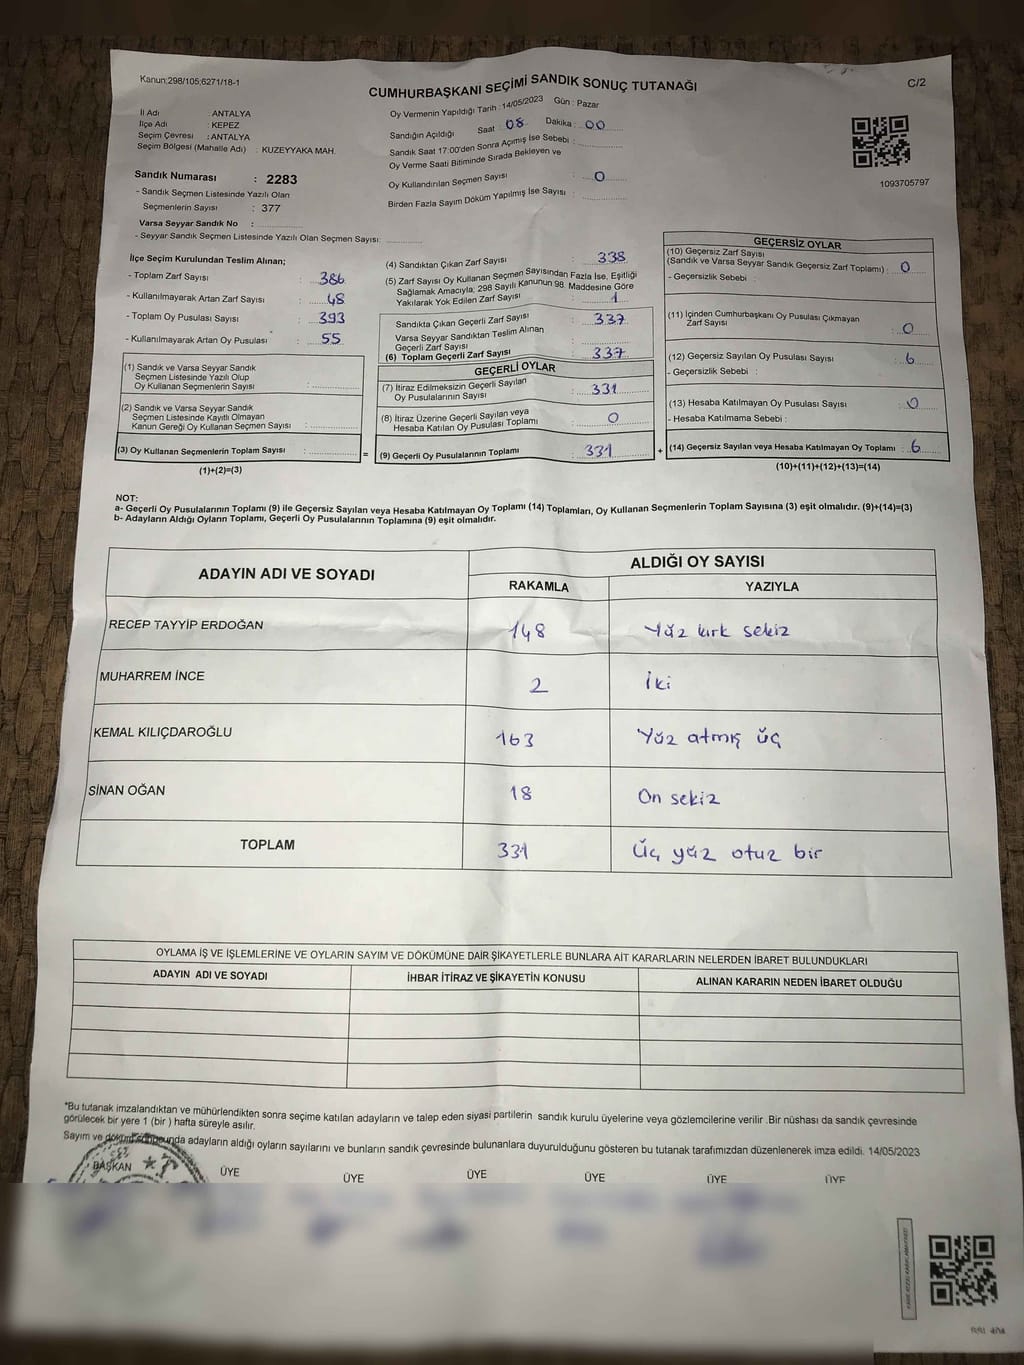 Kanun:298/105;6271/18-1
CUMHURBAŞKANI SEÇİMİ SANDIK SONUÇ TUTANAĞI
C/2
İl Adı : ANTALYA
İlçe Adı : KEPEZ
Seçim Çevresi : ANTALYA
Seçim Bölgesi (Mahalle Adı) : KUZEYYAKA MAH.
Sandık Numarası : 2283
- Sandık Seçmen Listesinde Yazılı Olan
Seçmenlerin Sayısı : 377
Varsa Seyyar Sandık No :
- Seyyar Sandık Seçmen Listesinde Yazılı Olan Seçmen Sayısı:
Oy Vermenin Yapıldığı Tarih : 14/05/2023 Gün : Pazar
Sandığın Açıldığı Saat : 08 Dakika : 00
Sandık Saat 17:00'den Sonra Açımış İse Sebebi :
Oy Verme Saati Bitiminde Sırada Bekleyen ve
Oy Kullandırılan Seçmen Sayısı : 0
Birden Fazla Sayım Döküm Yapılmış İse Sayısı :
1093705797
İlçe Seçim Kurulundan Teslim Alınan;
- Toplam Zarf Sayısı : 386
- Kullanılmayarak Artan Zarf Sayısı : 48
- Toplam Oy Pusulası Sayısı : 393
- Kullanılmayarak Artan Oy Pusulası : 55
(1) Sandık ve Varsa Seyyar Sandık
Seçmen Listesinde Yazılı Olup
Oy Kullanan Seçmenlerin Sayısı :
(2) Sandık ve Varsa Seyyar Sandık
Seçmen Listesinde Kayıtlı Olmayan
Kanun Gereği Oy Kullanan Seçmen Sayısı :
(3) Oy Kullanan Seçmenlerin Toplam Sayısı :
(1)+(2)=(3)
=
(4) Sandıktan Çıkan Zarf Sayısı : 338
(5) Zarf Sayısı Oy Kullanan Seçmen Sayısından Fazla İse, Eşitliği
Sağlamak Amacıyla; 298 Sayılı Kanunun 98. Maddesine Göre
Yakılarak Yok Edilen Zarf Sayısı : 1
Sandıkta Çıkan Geçerli Zarf Sayısı : 337
Varsa Seyyar Sandıktan Teslim Alınan
Geçerli Zarf Sayısı :
(6) Toplam Geçerli Zarf Sayısı : 337
GEÇERLİ OYLAR
(7) İtiraz Edilmeksizin Geçerli Sayılan
Oy Pusulalarının Sayısı : 331
(8) İtiraz Üzerine Geçerli Sayılan veya
Hesaba Katılan Oy Pusulası Toplamı : 0
(9) Geçerli Oy Pusulalarının Toplamı : 331
+
GEÇERSİZ OYLAR
(10) Geçersiz Zarf Sayısı
(Sandık ve Varsa Seyyar Sandık Geçersiz Zarf Toplamı) : 0
- Geçersizlik Sebebi :
(11) İçinden Cumhurbaşkanı Oy Pusulası Çıkmayan
Zarf Sayısı : 0
(12) Geçersiz Sayılan Oy Pusulası Sayısı : 6
- Geçersizlik Sebebi :
(13) Hesaba Katılmayan Oy Pusulası Sayısı : 0
- Hesaba Katılmama Sebebi :
(14) Geçersiz Sayılan veya Hesaba Katılmayan Oy Toplamı : 6
(10)+(11)+(12)+(13)=(14)
NOT:
a- Geçerli Oy Pusulalarının Toplamı (9) ile Geçersiz Sayılan veya Hesaba Katılmayan Oy Toplamı (14) Toplamları, Oy Kullanan Seçmenlerin Toplam Sayısına (3) eşit olmalıdır. (9)+(14)=(3)
b- Adayların Aldığı Oyların Toplamı, Geçerli Oy Pusulalarının Toplamına (9) eşit olmalıdır.
ADAYIN ADI VE SOYADI
ALDIĞI OY SAYISI
RAKAMLA YAZIYLA
RECEP TAYYİP ERDOĞAN 148 Yüz kırk sekiz
MUHARREM İNCE 2 İki
KEMAL KILIÇDAROĞLU 163 Yüz atmış üç
SİNAN OĞAN 18 On sekiz
TOPLAM 331 Üç yüz otuz bir
OYLAMA İŞ VE İŞLEMLERİNE VE OYLARIN SAYIM VE DÖKÜMÜNE DAİR ŞİKAYETLERLE BUNLARA AİT KARARLARIN NELERDEN İBARET BULUNDUKLARI
ADAYIN ADI VE SOYADI İHBAR İTİRAZ VE ŞİKAYETİN KONUSU ALINAN KARARIN NEDEN İBARET OLDUĞU
*Bu tutanak imzalandıktan ve mühürlendikten sonra seçime katılan adayların ve talep eden siyasi partilerin sandık kurulu üyelerine veya gözlemcilerine verilir. Bir nüshası da sandık çevresinde
görülecek bir yere 1 (bir ) hafta süreyle asılır.
Sayım ve döküm sonucunda adayların aldığı oyların sayılarını ve bunların sandık çevresinde bulunanlara duyurulduğunu gösteren bu tutanak tarafımızdan düzenlenerek imza edildi. 14/05/2023
BAŞKAN ÜYE ÜYE ÜYE ÜYE ÜYE ÜYE